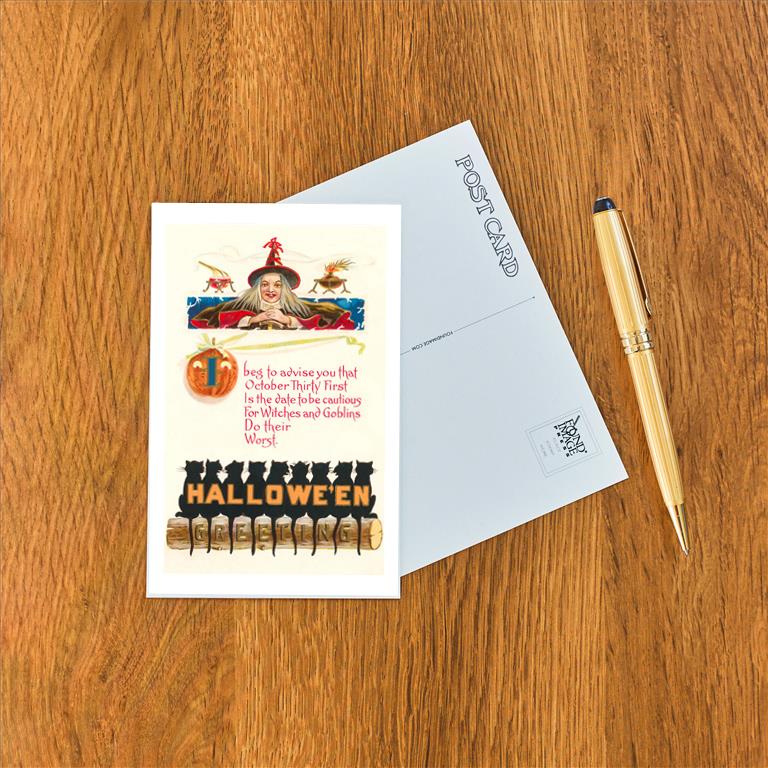 I beg to advise you that
October Thirty First
Is the date to be cautious
For Witches and Goblins
Do their
Worst.
HALLOWE'EN
GREETING
POST CARD
FOUNDIMAGE.COM
FOUND
IMAGE
PRESS